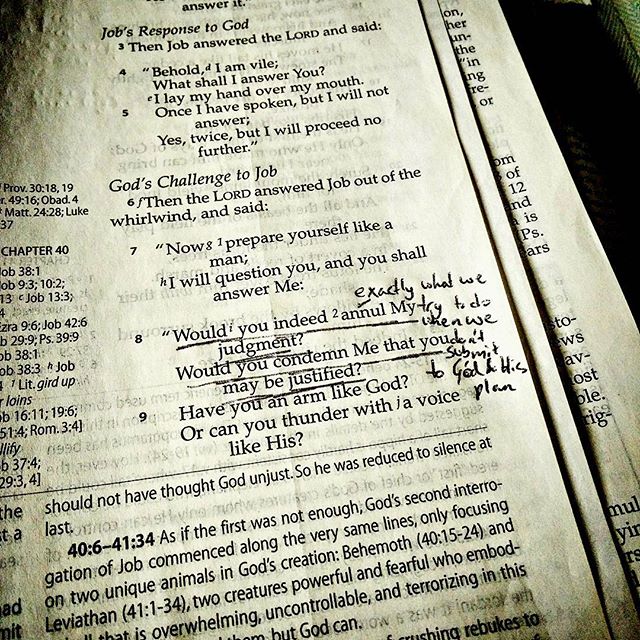 answer it."
Job's Response to God
3 Then Job answered the LORD and said:
4 "Behold,d I am vile;
What shall I answer You?
e I lay my hand over my mouth.
5 Once I have spoken, but I will not
answer;
Yes, twice, but I will proceed no
further."
God's Challenge to Job
6 f Then the LORD answered Job out of the
whirlwind, and said:
7 "Now g 1 prepare yourself like a
man;
h I will question you, and you shall
answer Me:
8 "Would i you indeed 2 annul My
judgment?
Would you condemn Me that you
may be justified?
9 Have you an arm like God?
Or can you thunder with j a voice
like His?
exactly what we
try to do
when we
don't
submit
to God & His
plan
Prov. 30:18, 19
49:16; Obad. 4
Matt. 24:28; Luke
37
CHAPTER 40
Job 38:1
Job 9:3; 10:2;
13 c Job 13:3;
4
Ezra 9:6; Job 42:6
29:9; Ps. 39:9
38:1
38:3 h Job
4 1 Lit. gird up
loins
16:11; 19:6;
51:4; Rom. 3:4]
37:4;
29:3, 4]
should not have thought God unjust. So he was reduced to silence at
last.
40:6–41:34 As if the first was not enough, God's second interro-
gation of Job commenced along the very same lines, only focusing
on two unique animals in God's creation: Behemoth (40:15-24) and
Leviathan (41:1-34), two creatures powerful and fearful who embod-
all that is overwhelming, uncontrollable, and terrorizing in this
them, but God can.
crushing rebukes to
the
on,
her
un-
the
"in
ing
re-
or
om
of
12
and
is
Ps.
ears